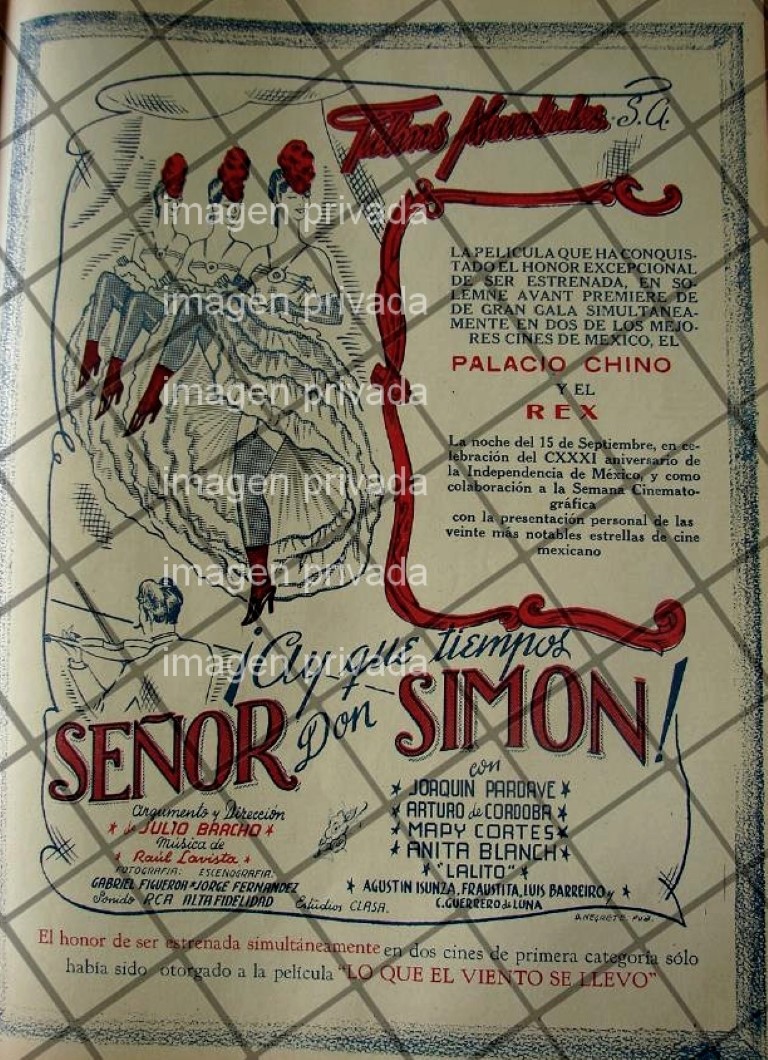 Films Mundiales, S.A.
imagen privada
LA PELICULA QUE HA CONQUIS-
TADO EL HONOR EXCEPCIONAL
DE SER ESTRENADA, EN SO-
LEMNE AVANT PREMIERE DE
DE GRAN GALA SIMULTANEA-
MENTE EN DOS DE LOS MEJO-
RES CINES DE MEXICO, EL
PALACIO CHINO
Y EL
REX
La noche del 15 de Septiembre, en ce-
lebración del CXXXI aniversario de
la Independencia de México, y como
colaboración a la Semana Cinemato-
gráfica
con la presentación personal de las
veinte más notables estrellas de cine
mexicano
imagen privada
imagen privada
imagen privada
imagen privada
imagen privada
¡Ay que tiempos
SEÑOR Don SIMON!
con
JOAQUIN PARDAVE
ARTURO de CORDOBA
MAPY CORTES
ANITA BLANCH
"LALITO"
AGUSTIN ISUNZA, FRAUSTITA, LUIS BARREIRO y
C. GUERRERO de LUNA
Argumento y Dirección
de JULIO BRACHO
Música de
Raúl Lavista
FOTOGRAFIA: ESCENOGRAFIA:
GABRIEL FIGUEROA JORGE FERNANDEZ
Sonido RCA ALTA FIDELIDAD Estudios CLASA.
A. NEGRETE PUB.
El honor de ser estrenada simultáneamente en dos cines de primera categoría sólo
había sido otorgado a la película "LO QUE EL VIENTO SE LLEVO"